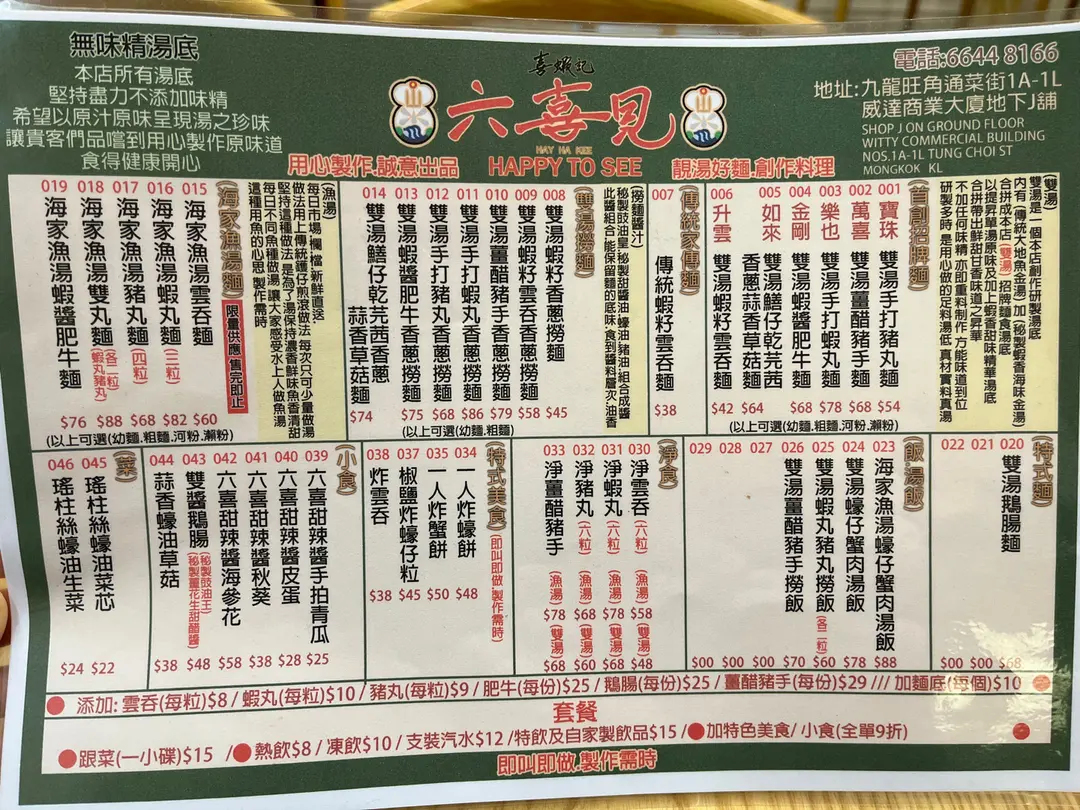 無味精湯底
本店所有湯底
堅持盡力不添加味精
希望以原汁原味呈現湯之珍味
讓貴客們品嚐到用心製作原味道
食得健康開心
喜蝦記
六喜見
HAY HA KEE
HAPPY TO SEE
用心製作.誠意出品
靚湯好麵.創作料理
電話:6644 8166
地址:九龍旺角通菜街1A-1L
威達商業大厦地下J舖
SHOP J ON GROUND FLOOR
WITTY COMMERCIAL BUILDING
NOS.1A-1L TUNG CHOI ST
MONGKOK KL
(雙湯)
雙湯是一個本店創作研製湯底
內有(傳統大地魚金湯)加(秘製蝦香海味金湯)
合拼成本店(雙湯)招牌麵食湯底
以提昇單湯原味及加上蝦香甜味精華湯底
合拼帶出鮮甜甘香味道之昇華
不加任何味精 亦即重料制作 方能味道到位
研製多時 是用心做的足料湯低 真材實料真湯
首創招牌麵
001 寶珠 雙湯手打豬丸麵 $54
002 萬喜 雙湯薑醋豬手麵 $68
003 樂也 雙湯手打蝦丸麵 $78
004 金剛 雙湯蝦醬肥牛麵 $68
005 如來 雙湯鱔仔乾芫茜
香蔥蒜香草菇麵 $64
006 升雲 雙湯蝦籽雲吞麵 $42
(以上可選(幼麵.粗麵.河粉.瀨粉)
傳統家傳麵
007 傳統蝦籽雲吞麵 $38
雙湯撈麵
(撈麵醬汁)
秘製豉油皇 秘製甜醬油 蠔油 豬油 組合成醬
此醬組合 能保留麵的底味 食到醬料層次油香
008 雙湯蝦籽香蔥撈麵 $45
009 雙湯蝦籽雲吞香蔥撈麵 $58
010 雙湯薑醋豬手香蔥撈麵 $79
011 雙湯手打蝦丸香蔥撈麵 $86
012 雙湯手打豬丸香蔥撈麵 $68
013 雙湯蝦醬肥牛香蔥撈麵 $75
014 雙湯鱔仔乾芫茜香蔥
蒜香草菇麵 $74
(以上可選(幼麵.粗麵)
海家漁湯麵
限量供應 售完即止
(漁湯)
每日市場 欄檔 新鮮直送.
做法用上傳統護仔煎滾做法 每次只可少量做湯
堅持這種做法 是為了湯保持濃香鮮味魚香清甜
每日不同魚種做湯 讓大家感受水上人做魚湯
這種用魚的心思 製作需時
015 海家漁湯雲吞麵 $60
016 海家漁湯蝦丸麵 (三粒) $82
017 海家漁湯豬丸麵 (四粒) $68
018 海家漁湯雙丸麵 (各二粒) (蝦丸豬丸) $88
019 海家漁湯蝦醬肥牛麵 $76
(以上可選(幼麵.粗麵.河粉.瀨粉)
特式麵
020 雙湯鵝腸麵 $68
021 $00
022 $00
飯湯飯
023 海家漁湯蠔仔蟹肉湯飯 $88
024 雙湯蠔仔蟹肉湯飯 $78
025 雙湯蝦丸豬丸撈飯 (各二粒) $60
026 雙湯薑醋豬手撈飯 $70
027 $00
028 $00
029 $00
淨食
030 淨雲吞 (六粒) (漁湯) $58 (雙湯) $48
031 淨蝦丸 (六粒) (漁湯) $78 (雙湯) $68
032 淨豬丸 (六粒) (漁湯) $68 (雙湯) $60
033 淨薑醋豬手 (漁湯) $78 (雙湯) $68
特式美食
(即叫即做.製作需時)
034 一人炸蠔餅 $48
035 一人炸蟹餅 $50
037 椒鹽炸蠔仔粒 $45
038 炸雲吞 $38
小食
039 六喜甜辣醬手拍青瓜 $25
040 六喜甜辣醬皮蛋 $28
041 六喜甜辣醬秋葵 $38
042 六喜甜辣醬海參花 $58
043 雙醬鵝腸 (秘製豉油王) (秘製薑花生甜醋醬) $48
044 蒜香蠔油草菇 $38
菜
045 瑤柱絲蠔油菜芯 $22
046 瑤柱絲蠔油生菜 $24
添加: 雲吞(每粒)$8 / 蝦丸(每粒)$10 / 豬丸(每粒)$9 / 肥牛(每份)$25 / 鵝腸(每份)$25 / 薑醋豬手(每份)$29 /// 加麵底(每個)$10
套餐
跟菜(一小碟)$15 / 熱飲$8 / 凍飲$10 / 支裝汽水$12 /特飲及自家製飲品$15 / 加特色美食/ 小食(全單9折)
即叫即做.製作需時